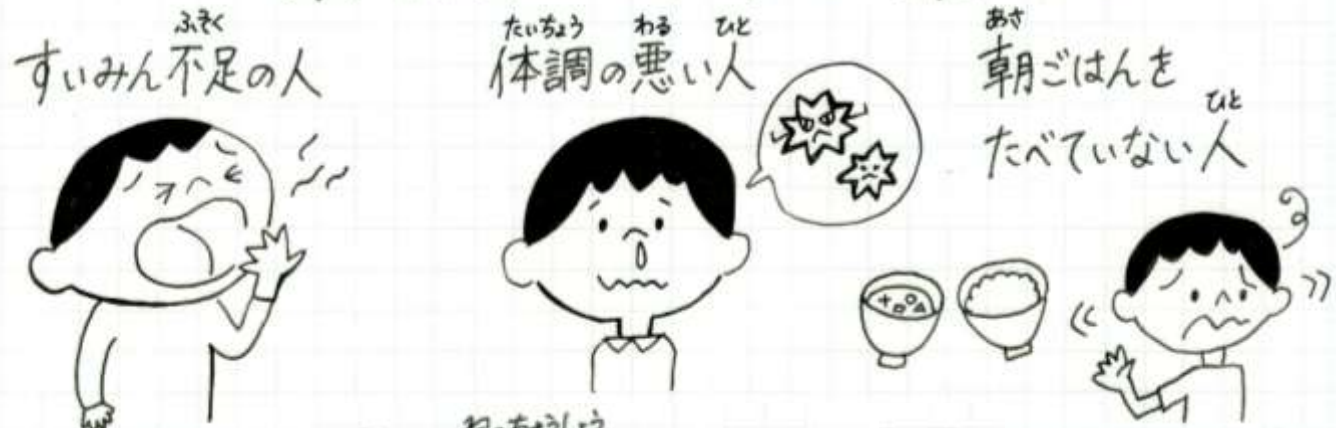 ふそく
すいみん不足の人
たいちょう わる ひと
体調の悪い人
あさ
朝ごはんを
ひと
たべていない人
ねっちゅうしょう